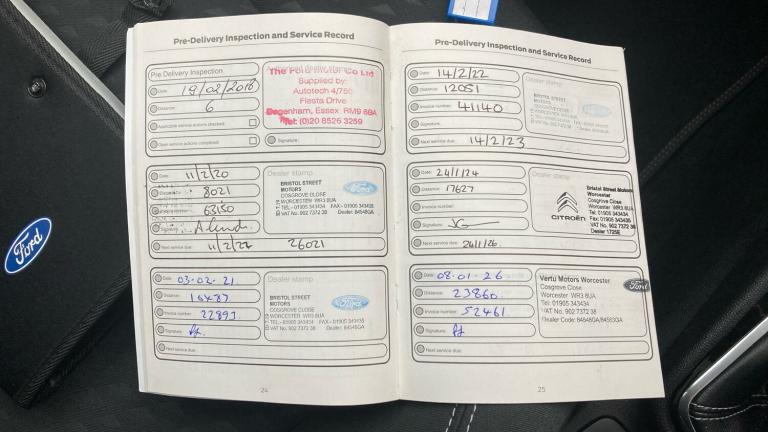 Pre-Delivery Inspection and Service Record
Pre Delivery Inspection
Date: 19/02/2018
Distance: 6
Applicable service actions checked:
Open service actions completed:
The Ford Motor Co Ltd
Supplied by:
Autotech 4/750
Fiesta Drive
Dagenham, Essex RM9 6BA
Tel: (0)20 8526 3259
Signature:
Date: 11/2/20
Distance: 8021
Invoice number: 63150
Signature:
Next service due: 11/2/22 26021
Dealer stamp
BRISTOL STREET
MOTORS
COSGROVE CLOSE
WORCESTER WR3 8UA
TEL.- 01905 343434 FAX - 01905 343435
VAT No. 902 7372 38 Dealer: 84548GA
Ford
Date: 03.02.21
Distance:
Invoice number: 22893
Signature:
Next service due:
Dealer stamp
BRISTOL STREET
MOTORS
COSGROVE CLOSE
WORCESTER WR3 8UA
TEL.- 01905 343434 FAX - 01905 343435
VAT No. 902 7372 38 Dealer: 84548GA
Ford
24
Pre-Delivery Inspection and Service Record
Date: 14/2/22
Distance: 12051
Invoice number: 41140
Signature:
Next service due: 14/2/23
Dealer stamp
BRISTOL STREET
MOTORS
Date: 24/1/24
Distance: 17627
Invoice number:
Signature: JG
Next service due: 24/1/26.
Dealer stamp
CITROËN
Bristol Street Motors
Worcester
Cosgrove Close
Worcester WR3 8UA
Tel: 01905 343434
Fax: 01905 343435
VAT No. 902 7372 38
Dealer 1725E
Date: 08.01.26
Distance: 23860
Invoice number: 52461
Signature:
Next service due:
Vertu Motors Worcester
Cosgrove Close
Worcester WR3 8UA
Tel: 01905 343434
VAT No. 902 7372 38
Dealer Code: 84548GA/84563GA
Ford
25
Ford